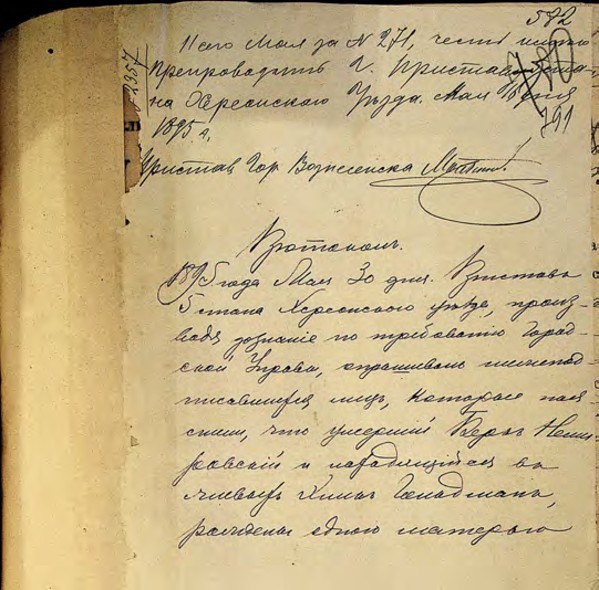 582
11 сего Мая за № 271, честь имею
препроводить Г. Приставу 5 ста-
на Херсонского Уезда. Мая 16 дня
1895 г.
791
№ 2357
Пристав Гор. Вознесенска
Протоколъ.
1895 года Мая 30 дня. Приставъ
5 стана Херсонского уезда, произ-
водя дознание по требованію Город-
ской Управы, опрашивалъ нижепод-
писавшихся лицъ, которые пояс
нили, что умерший Беръ Неми
ровскій и находящійся въ
живыхъ Хаимъ
рождены одною матерью